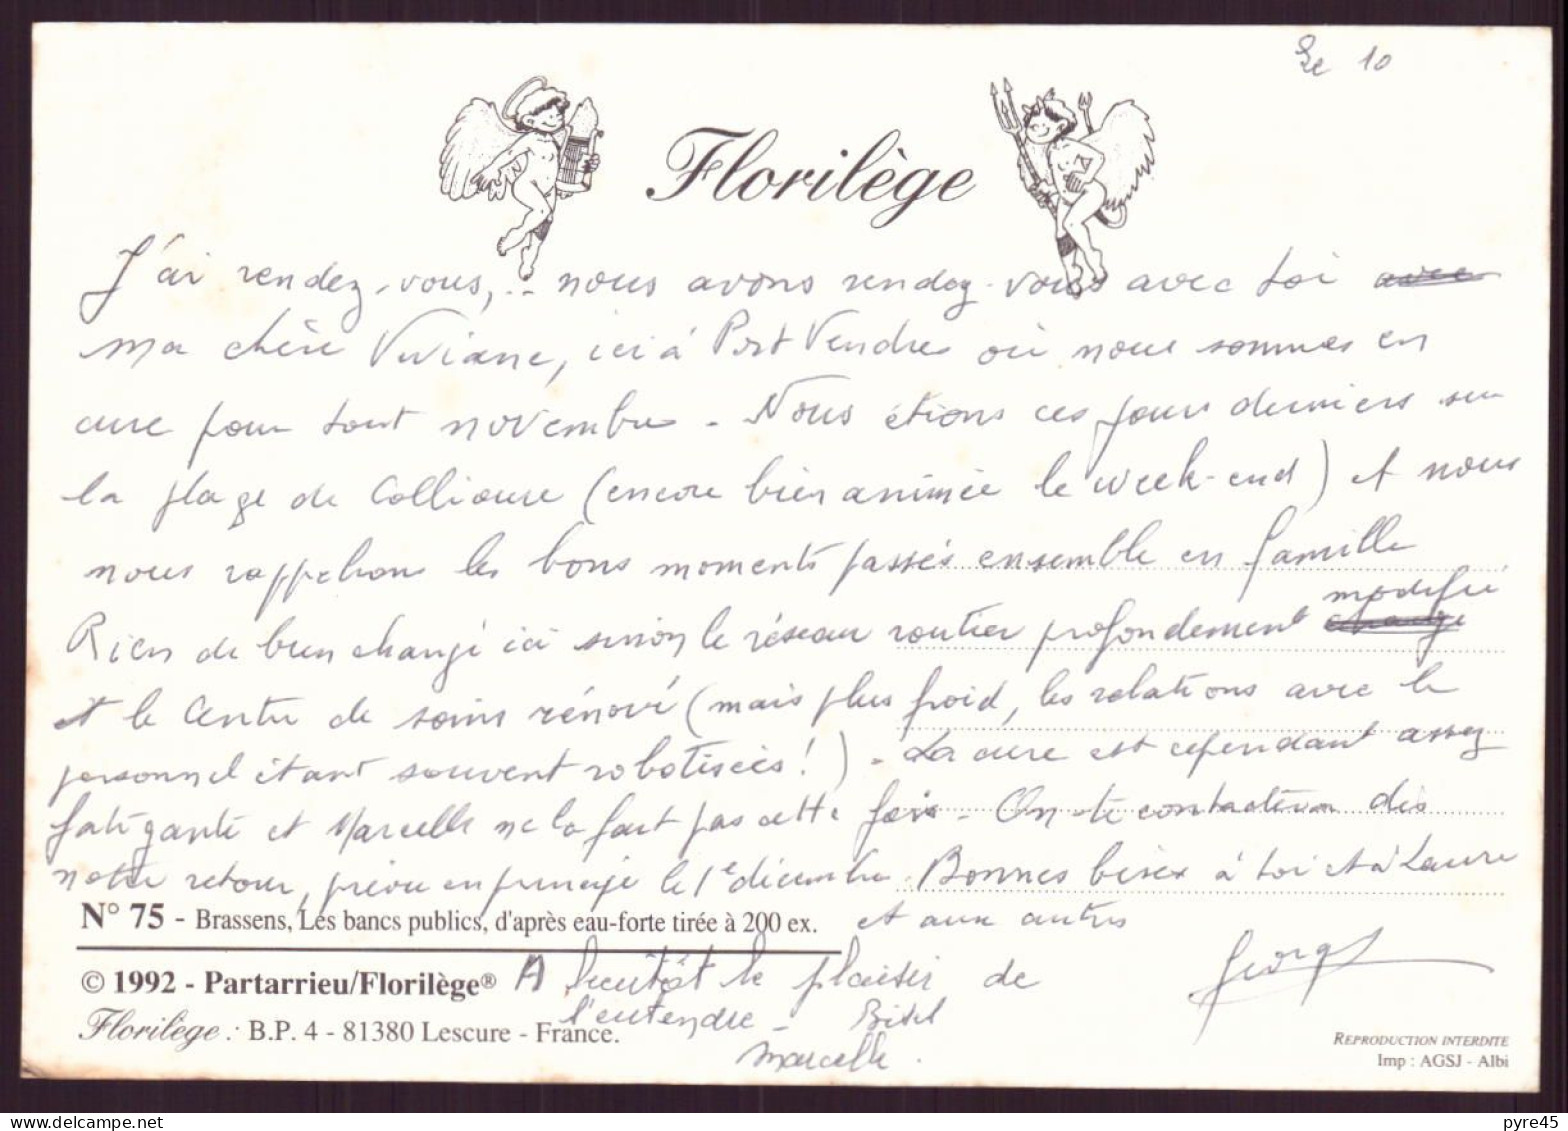 Le 10
Florilège
J'ai rendez-vous,... nous avons rendez-vous avec toi avec
ma chère Viviane, ici à Port Vendres où nous sommes en
cure pour tout novembre - Nous étions ces jours derniers sur
la plage de Collioure (encore bien animée le week-end) et nous
nous rappelions les bons moments passés ensemble en famille
Rien de bien changé ici sinon le réseau routier profondement changé modifié
et le Centre de soins rénové (mais plus froid, les relations avec le
personnel étant souvent robotisées!) - La cure est cependant assez
fatigante et Marcelle ne la fait pas cette fois - On te contactera dès
notre retour, prévu en principe le 1e décembre. Bonnes bises à toi et à Laure
et aux autres
N° 75 - Brassens, Les bancs publics, d'après eau-forte tirée à 200 ex.
Georges
© 1992 - Partarrieu/Florilège®
A bientôt le plaisir de
l'entendre - Bises
Marcelle.
Florilège : B.P. 4 - 81380 Lescure - France.
REPRODUCTION INTERDITE
Imp : AGSJ - Albi
pyre45